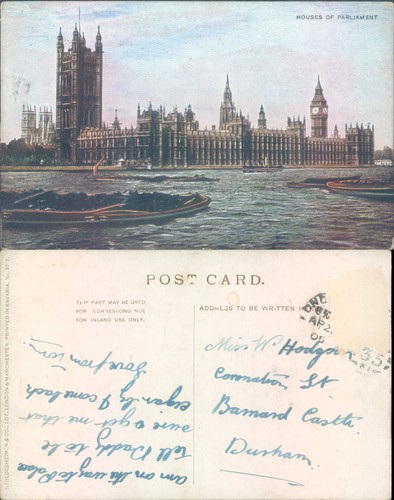 HOUSES OF PARLIAMENT
POST CARD.
THIS PART MAY BE USED
FOR CORRESPONDENCE
FOR INLAND USE ONLY.
ADDRESS TO BE WRITTEN
OND
AP 2
06
35
Miss W Hodgson
Coronation St
Barnard Castle
Durham.
am on the way to Palace
Tell Daddy to be
sure & get me that
I come back
Love from Tom.
& CO., LTD., LONDON & MANCHESTER. PRINTED IN BAVARIA,